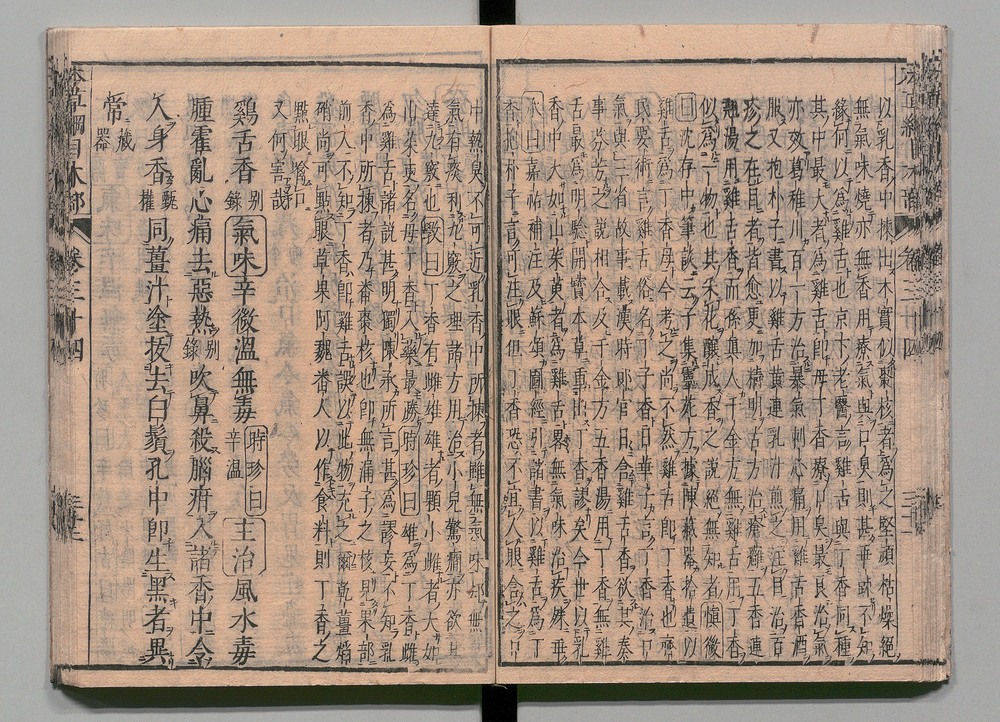 以乳香中揀出木實似棗核者為之堅頑枯燥絕
無氣味燒亦無香用療氣與口臭則甚乖疎不知
緣何以為雞舌也京下老醫言雞舌與丁香同種
其中最大者為雞舌即母丁香療口臭最良治氣
亦效葛稚川百一方治暴氣刺心痛用雞舌香酒
服又抱朴子書以雞舌黃連乳汁煎之注目治百
疹之在目者皆愈更加精明古方治瘡癰五香連
翹湯用雞舌香而孫真人千金方無雞舌用丁香
似為一物也其采花釀成香之說絕無知者慎微
曰沈存中筆談云予集靈苑方據陳藏器拾遺以
雞舌為丁香母今考之尚不然雞舌即丁香也齊
民要術言雞舌俗名丁子香日華子言丁香治口
氣與三省故事載漢時郎官日含雞舌香欲其奏
事芬芳之說相合及千金方五香湯用丁香無雞
舌最為明驗開寶本草重出丁香謬矣今世以乳
香中大如山茱萸者為雞舌畧無氣味治疾殊乖
承曰嘉祐補注及蘇頌圖經引諸書以雞舌為丁
香抱朴子言可注眼但丁香恐不宜入眼含之口
中熱臭不可近乳香中所揀者雖無氣味却無臭
氣有淡利九竅之理諸方用治小兒驚癇亦欲其
達九竅也斅曰丁香有雌雄雄者顆小雌者大如
山茱萸更名母丁香入藥最勝時珍曰雄為丁香雌
為雞舌諸說甚明獨陳承所言甚為謬妄不知乳
香中所揀者乃番棗核也即無漏子之核見果部
前人不知丁香即雞舌誤以此物充之爾乾薑焰
硝尚可點眼草果阿魏番人以作食料則丁香之
點眼含口
又何害哉
雞舌香別錄氣味辛微溫無毒時珍曰辛溫主治風水毒
腫霍亂心痛去惡熱別錄吹鼻殺腦疳入諸香中令
人身香甄權同薑汁塗拔去白鬚孔中即生黑者異
常藏器
本草綱目木部 卷三十四